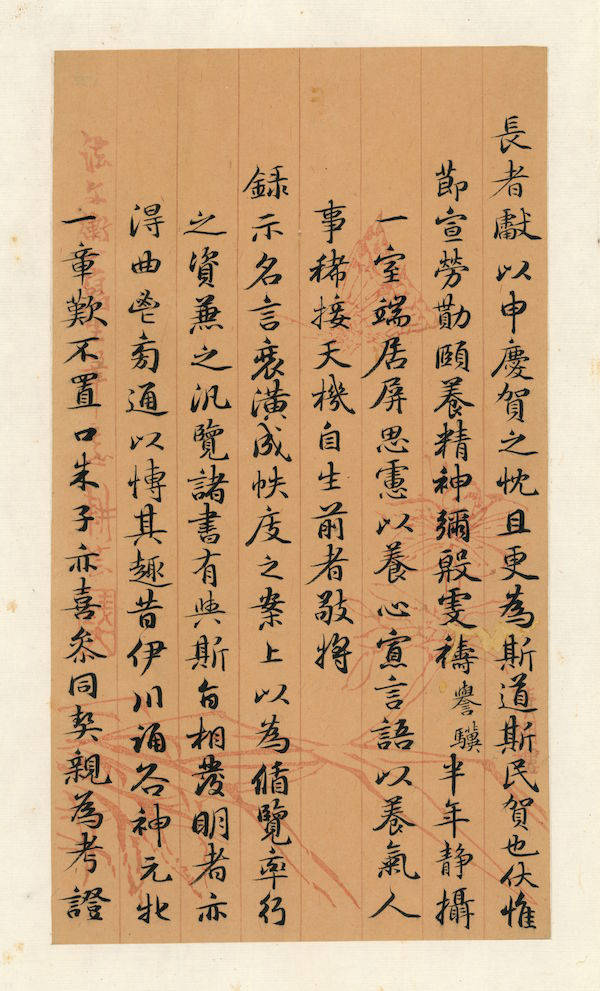 長者獻以申慶賀之忱且更為斯道斯民賀也伏惟
節宣勞勩頤養精神彌殷雯禱譽驥半年靜攝
一室端居屏思慮以養心寡言語以養氣人
事稀接天機自生前者敬將
錄示名言裝潢成帙庋之案上以為循覽率行
之資兼之汎覽諸書有與斯旨相發明者亦
得曲鬯旁通以博其趣昔伊川誦谷神元牝
一章歎不置口朱子亦喜叅同契親為考證